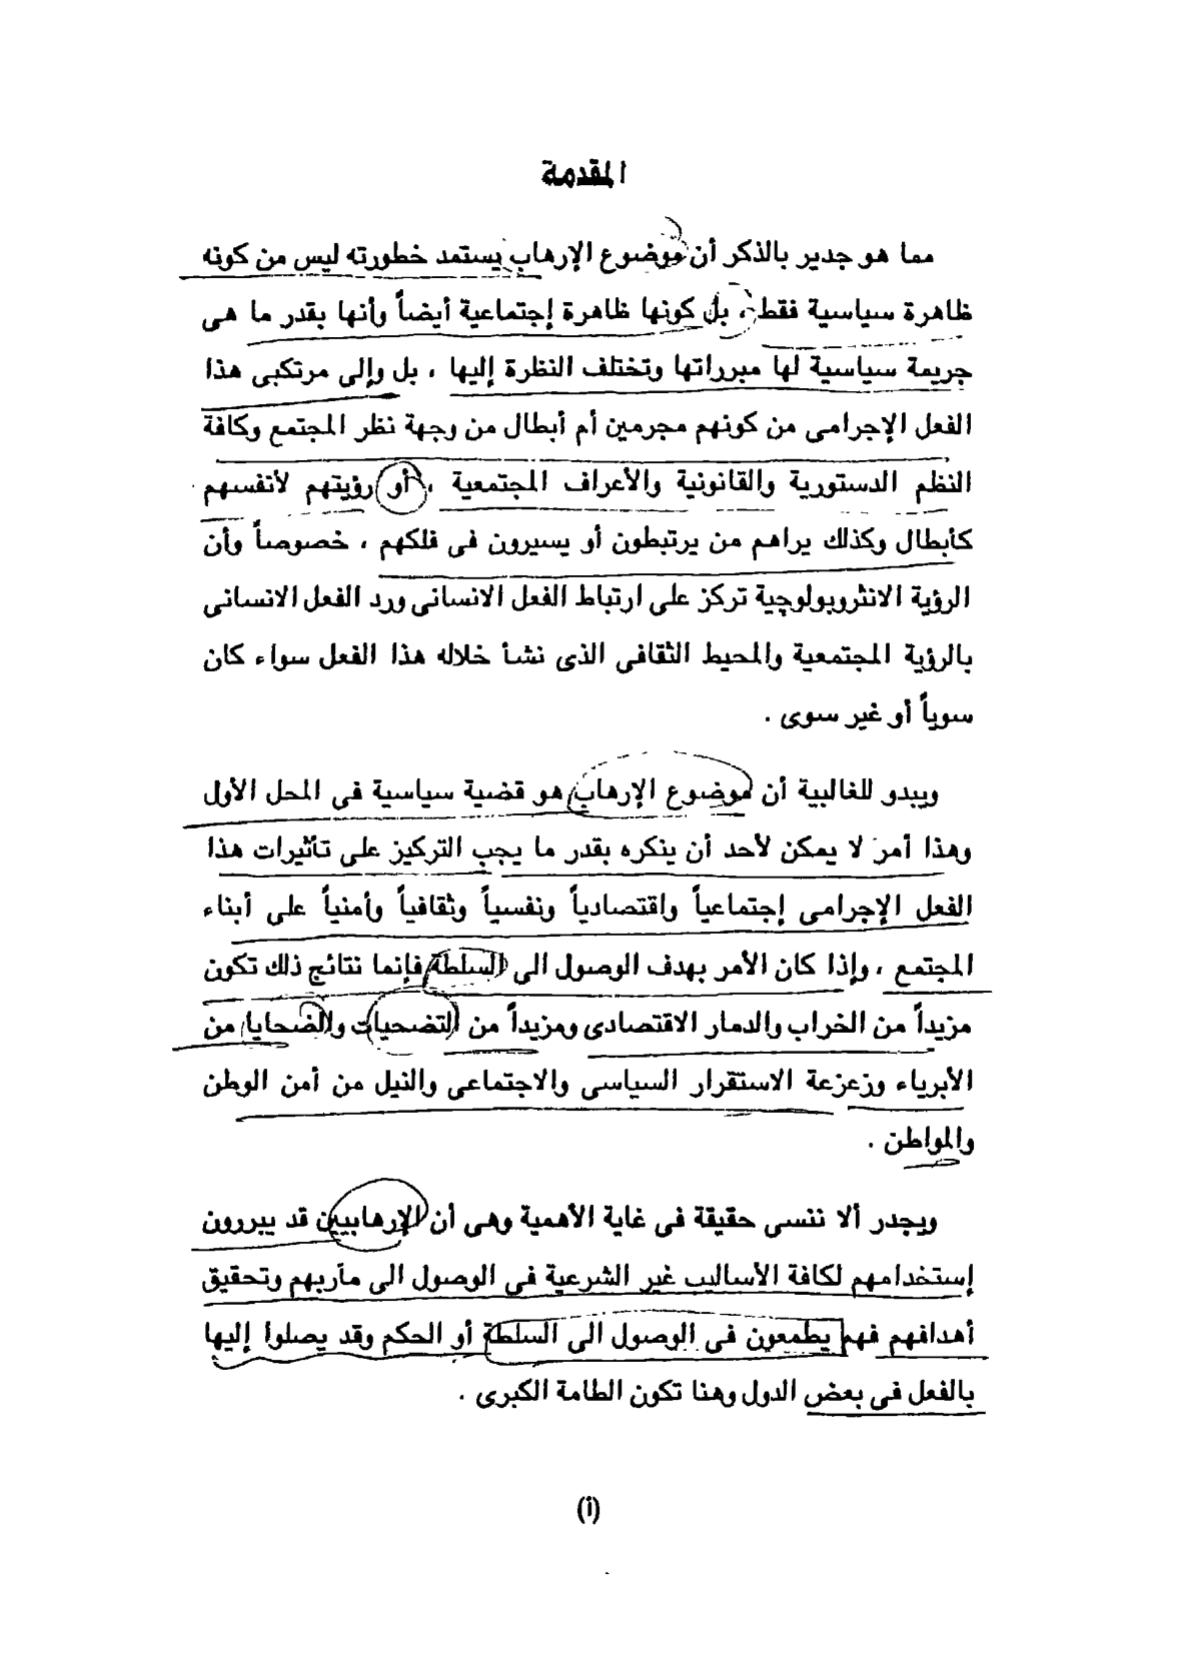 المقدمة
مما هو جدير بالذكر أن موضوع الإرهاب يستمد خطورته ليس من كونه
ظاهرة سياسية فقط ، بل كونها ظاهرة إجتماعية أيضاً وأنها بقدر ما هى
جريمة سياسية لها مبرراتها وتختلف النظرة إليها ، بل وإلى مرتكبى هذا
الفعل الإجرامى من كونهم مجرمين أم أبطال من وجهة نظر المجتمع وكافة
النظم الدستورية والقانونية والأعراف المجتمعية ، أو رؤيتهم لأنفسهم
كأبطال وكذلك يراهم من يرتبطون أو يسيرون فى فلكهم ، خصوصاً وأن
الرؤية الانثروبولوچية تركز على ارتباط الفعل الانسانى ورد الفعل الانسانى
بالرؤية المجتمعية والمحيط الثقافى الذى نشأ خلاله هذا الفعل سواء كان
سوياً أو غير سوى .
ويبدو للغالبية أن موضوع الإرهاب هو قضية سياسية فى المحل الأول
وهذا أمر لا يمكن لأحد أن ينكره بقدر ما يجب التركيز على تأثيرات هذا
الفعل الإجرامى إجتماعياً واقتصادياً ونفسياً وثقافياً وأمنياً على أبناء
المجتمع ، وإذا كان الأمر بهدف الوصول الى السلطة فإنما نتائج ذلك تكون
مزيداً من الخراب والدمار الاقتصادى ومزيداً من التضحيات والضحايا من
الأبرياء وزعزعة الاستقرار السياسى والاجتماعى والنيل من أمن الوطن
والمواطن .
ويجدر ألا ننسى حقيقة فى غاية الأهمية وهى أن الإرهابيين قد يبررون
إستخدامهم لكافة الأساليب غير الشرعية فى الوصول الى مآربهم وتحقيق
أهدافهم فهم يطمعون فى الوصول الى السلطة أو الحكم وقد يصلوا إليها
بالفعل فى بعض الدول وهنا تكون الطامة الكبرى .
(أ)